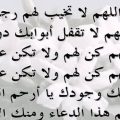 اللهم لا تخيب لهم رجـ
ـم لا تقفل أبوابك دو
ـم كن لهم ولا تكن عـ
ـم كن لهم ولا تكن عـ
ـك وجودك يا أرحم ا
هذا الدعاء ومنك ا